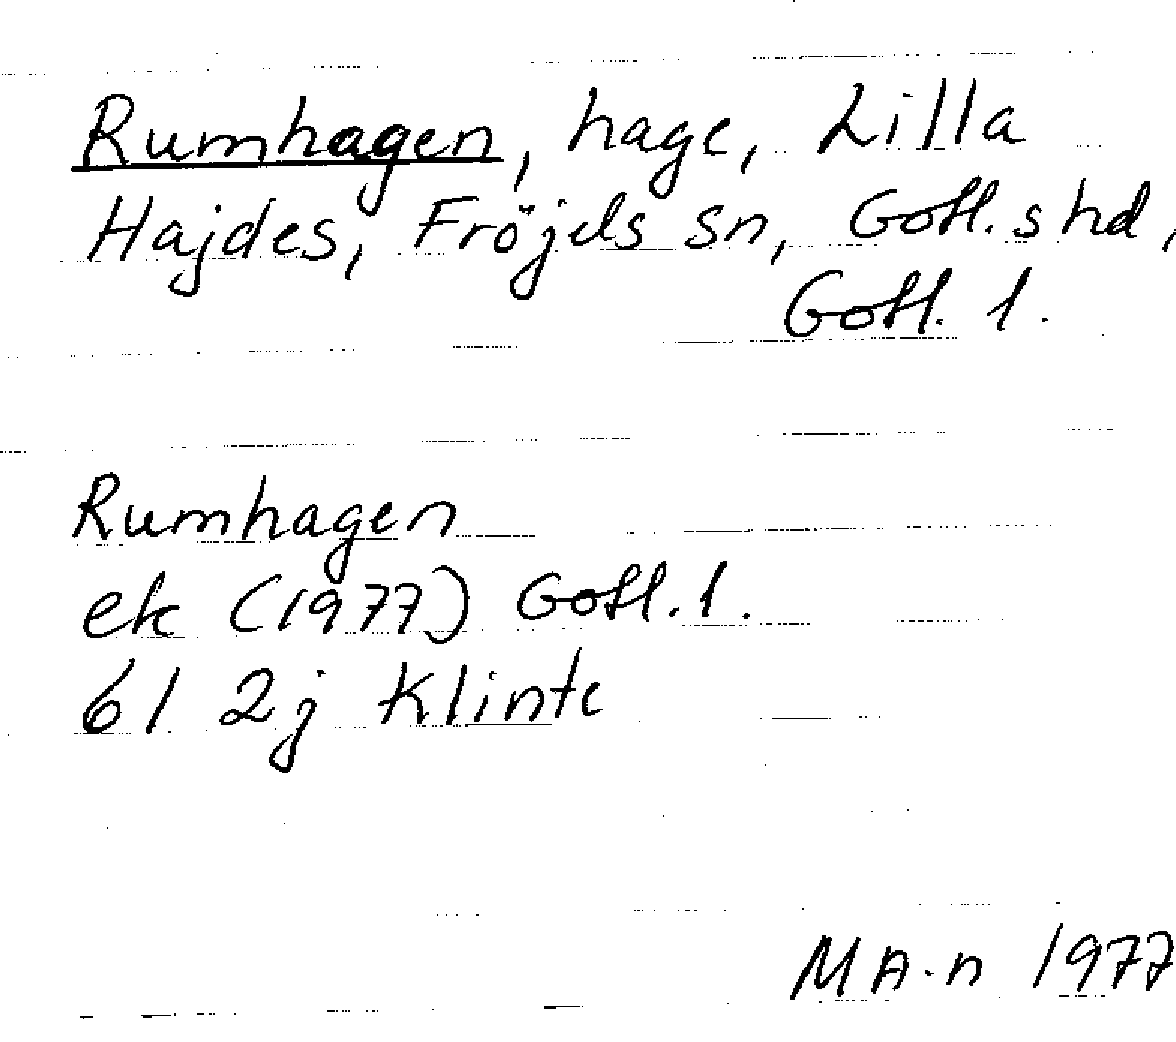 Rumhagen, hage, Lilla
Hajdes, Fröjels sn, Gotl. s hd,
Gotl. l.
Rumhagen
ek (1977) Gotl. l.
6I 2j Klinte
MA-n 1977